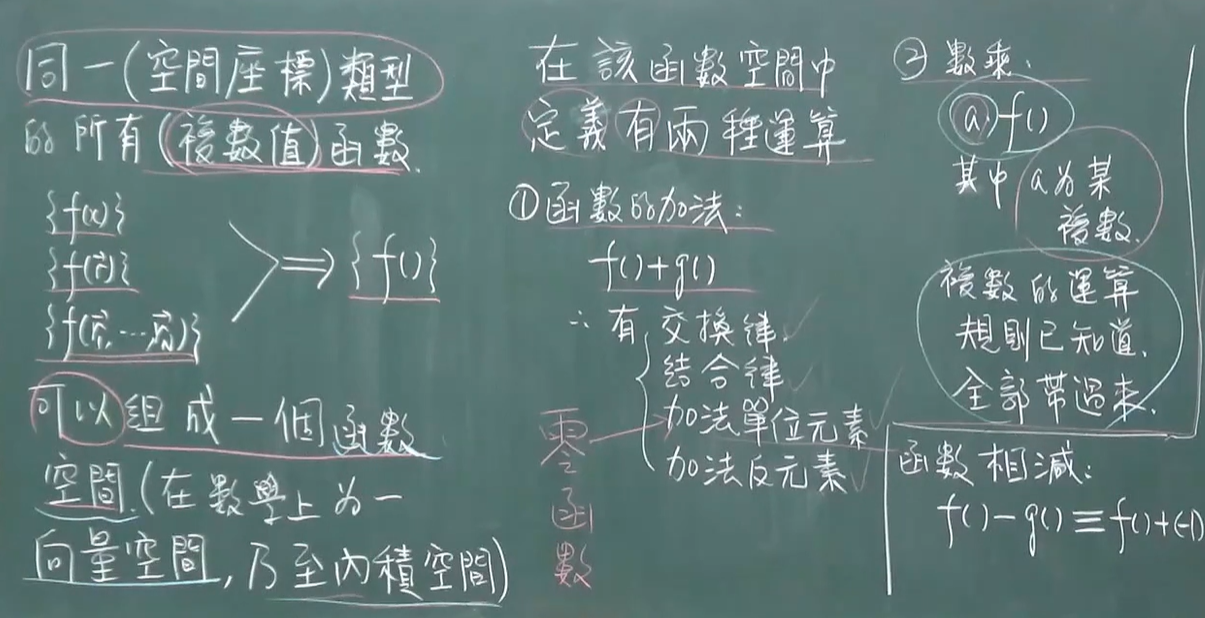 同一(空間座標)類型
的所有(複數值)函數.
{f(x)}
{f(r⃗)}
{f(r⃗₁, ⋯ r⃗ₙ)}
⇒ {f()}
可以組成一個函數
空間.(在數學上為一
向量空間,乃至內積空間)
在該函數空間中
定義有兩種運算
①函數的加法:
f()+g()
∴有{交換律.✓
結合律✓
加法單位元素✓
加法反元素✓
零函數
②數乘:
a f()
其中 a為某
複數.
複數的運算
規則已知道.
全部帶過來.
函數相減:
f()-g()≡f()+(-1)